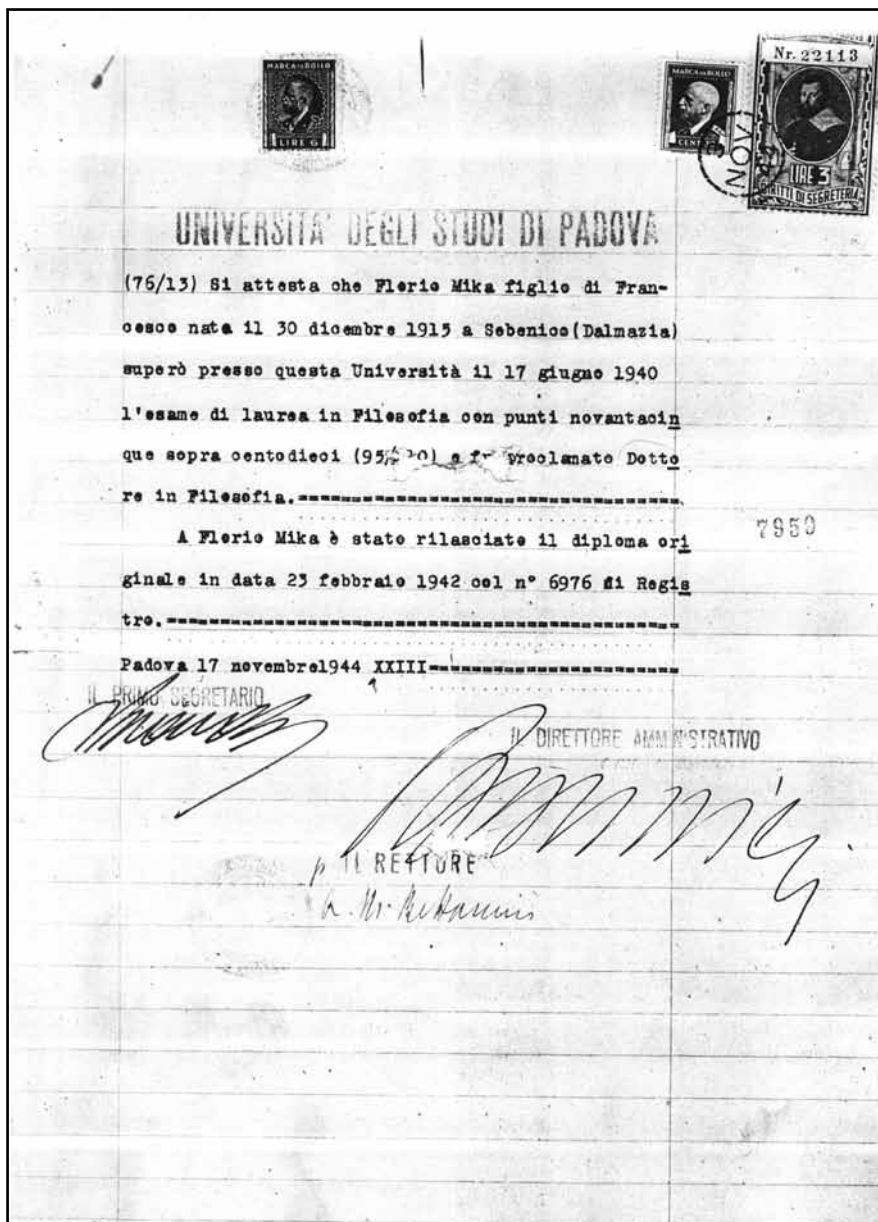 MARCA DA BOLLO
LIRE 6
MARCA DA BOLLO
CENT
Nr. 22113
NOV
LIRE 3
DIRITTI DI SEGRETERIA
UNIVERSITA' DEGLI STUDI DI PADOVA
(76/13) Si attesta che Florio Mika figlio di Fran-
cesco nato il 30 dicembre 1915 a Sebenico(Dalmazia)
superò presso questa Università il 17 giugno 1940
l'esame di laurea in Filosofia con punti novantacin
que sopra centodieci (95 e proclamato Dotto
re in Filosofia.====================================
7950
A Florio Mika è stato rilasciato il diploma ori
ginale in data 23 febbraio 1942 col n° 6976 di Regis
tro.=================================================
Padova 17 novembre1944 XXIII========================
IL PRIMO SEGRETARIO
IL DIRETTORE AMMINISTRATIVO
p IL RETTORE